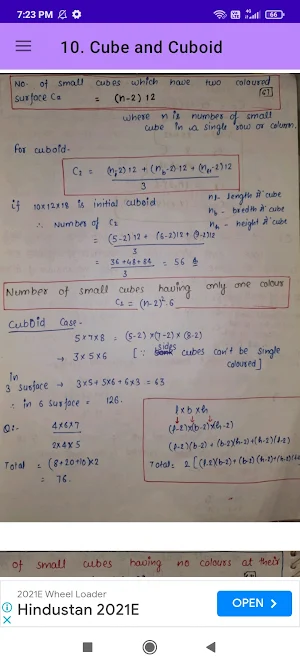 7:23 PM
66
10. Cube and Cuboid
No. of small cubes which have two coloured
surface C2 = (n-2) 12
where n is number of small
cube in a single row or column.
For cuboid-
C2 = (nl-2) 12 + (nb-2) 12 + (nh-2) 12
3
if 10x12x18 is initial cuboid
nl - length of cube
nb - bredth of cube
nh - height of cube
∴ Number of C2
= (5-2) 12 + (6-2) 12 + (9-2) 12
3
= 36 + 48 + 84 = 56
3
Number of small cubes having only one colour
C1 = (n-2)². 6
CUBOID Case-
5 x 7 x 8 = (5-2) x (7-2) x (8-2)
→ 3 x 5 x 6 [∵ sides cubes can't be single
coloured]
in
3 surface → 3x5 + 5x6 + 6x3 = 63
∴ in 6 surface = 126.
Q:- 4x6x7
2x4x5
Total = (8+20+10)x2
= 76.
l x b x h
(l-2)x(b-2)x(h-2)
(l-2)(b-2) + (b-2)(h-2) + (h-2)(l-2)
Total = 2 [(l-2)(b-2) + (b-2)(h-2) + (h-2)
of small cubes having no colours at their
2021E Wheel Loader
Hindustan 2021E
OPEN